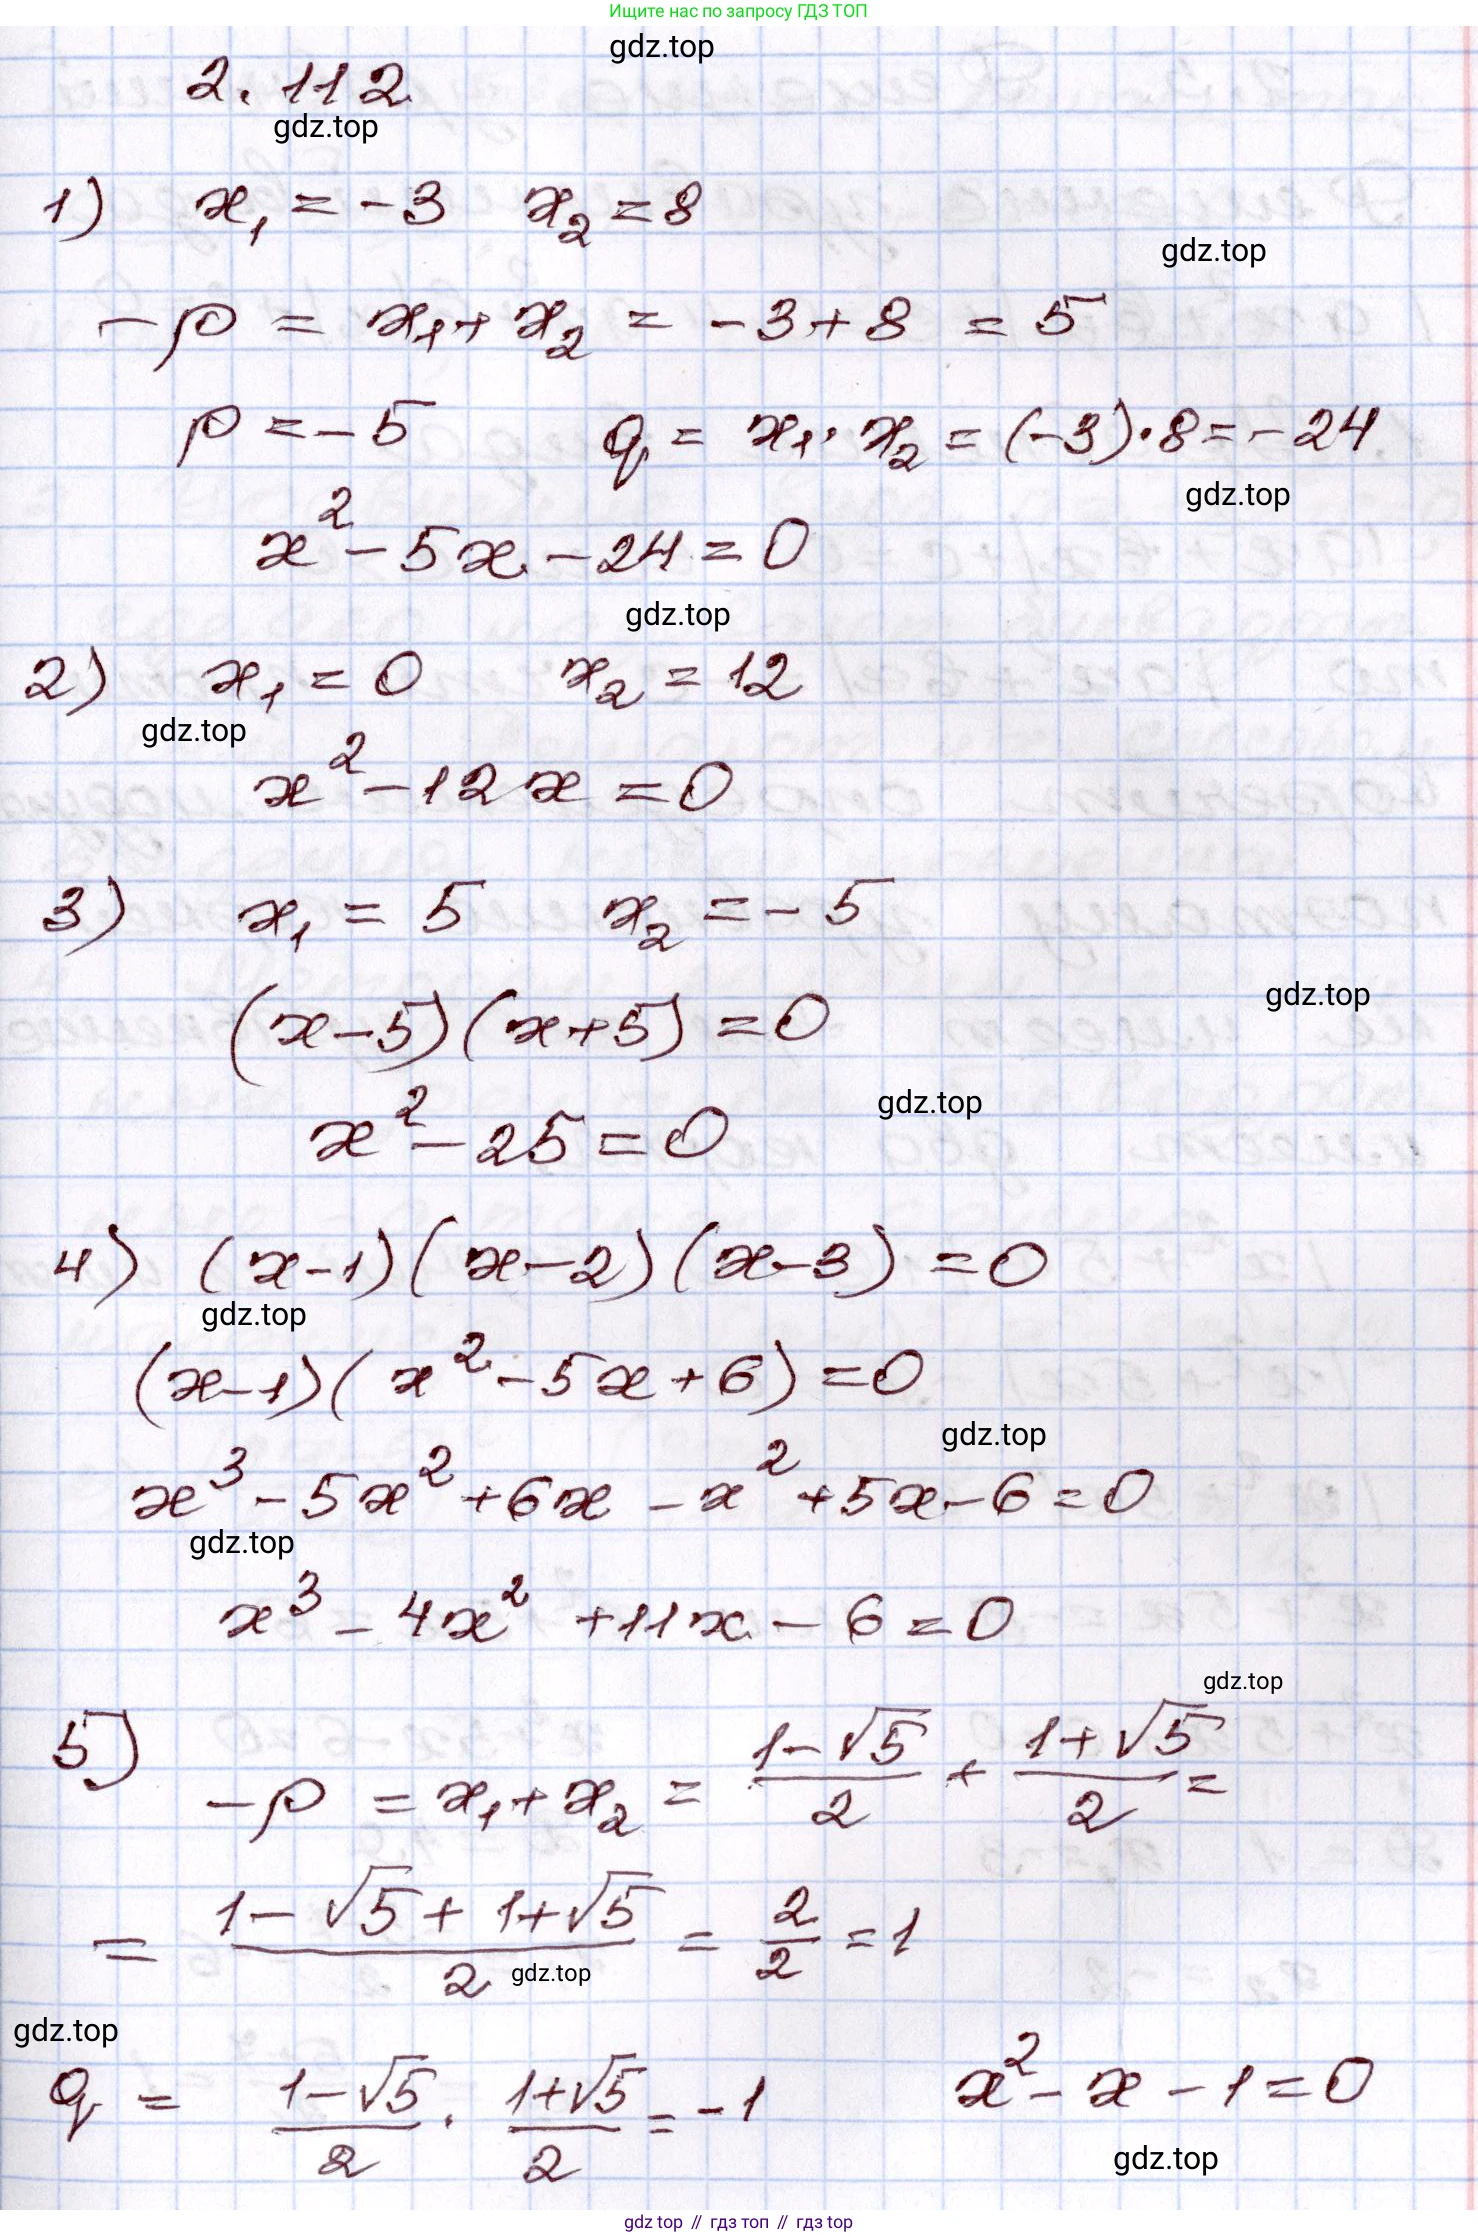 Ищите нас по запросу ГДЗ ТОП
gdz.top
2.112
gdz.top
1) x₁ = -3 x₂ = 8
gdz.top
-p = x₁ + x₂ = -3 + 8 = 5
p = -5 q = x₁ · x₂ = (-3) · 8 = -24
gdz.top
x² - 5x - 24 = 0
gdz.top
2) x₁ = 0 x₂ = 12
gdz.top
x² - 12x = 0
3) x₁ = 5 x₂ = -5
gdz.top
(x-5)(x+5) = 0
gdz.top
x² - 25 = 0
4) (x-1)(x-2)(x-3) = 0
gdz.top
(x-1)(x² - 5x + 6) = 0
gdz.top
x³ - 5x² + 6x - x² + 5x - 6 = 0
gdz.top
x³ - 4x² + 11x - 6 = 0
gdz.top
5) -p = x₁ + x₂ = (1-√5)/2 + (1+√5)/2 =
= (1-√5+1+√5)/2 = 2/2 = 1
gdz.top
gdz.top
q = (1-√5)/2 · (1+√5)/2 = -1 x² - x - 1 = 0
gdz.top
gdz top // гдз топ // gdz top